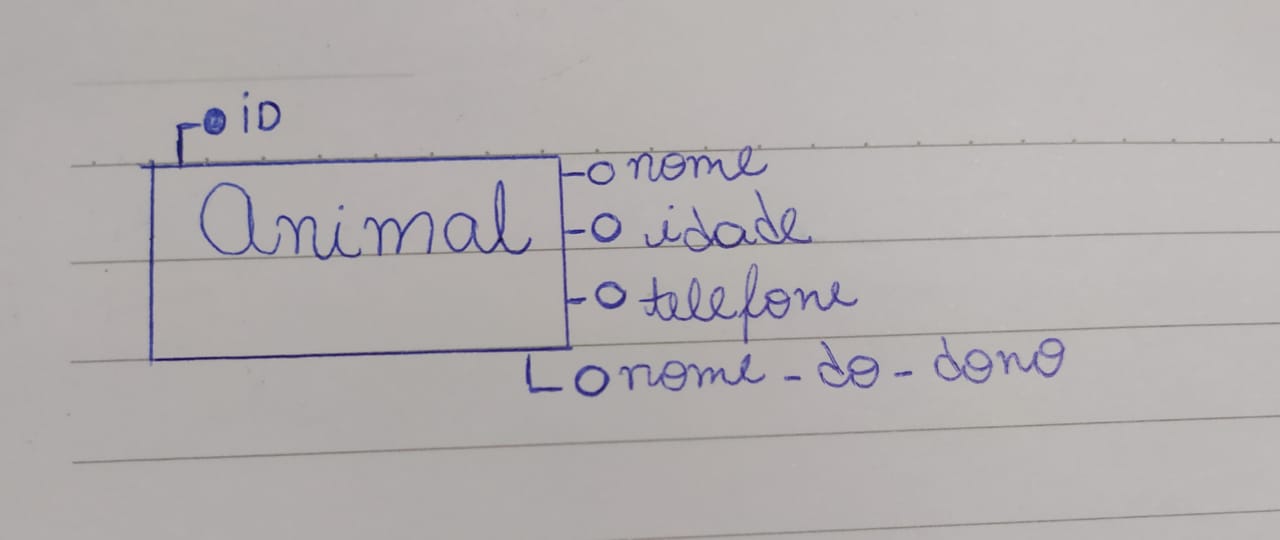 iD
Animal
nome
idade
telefone
nome-do-dono